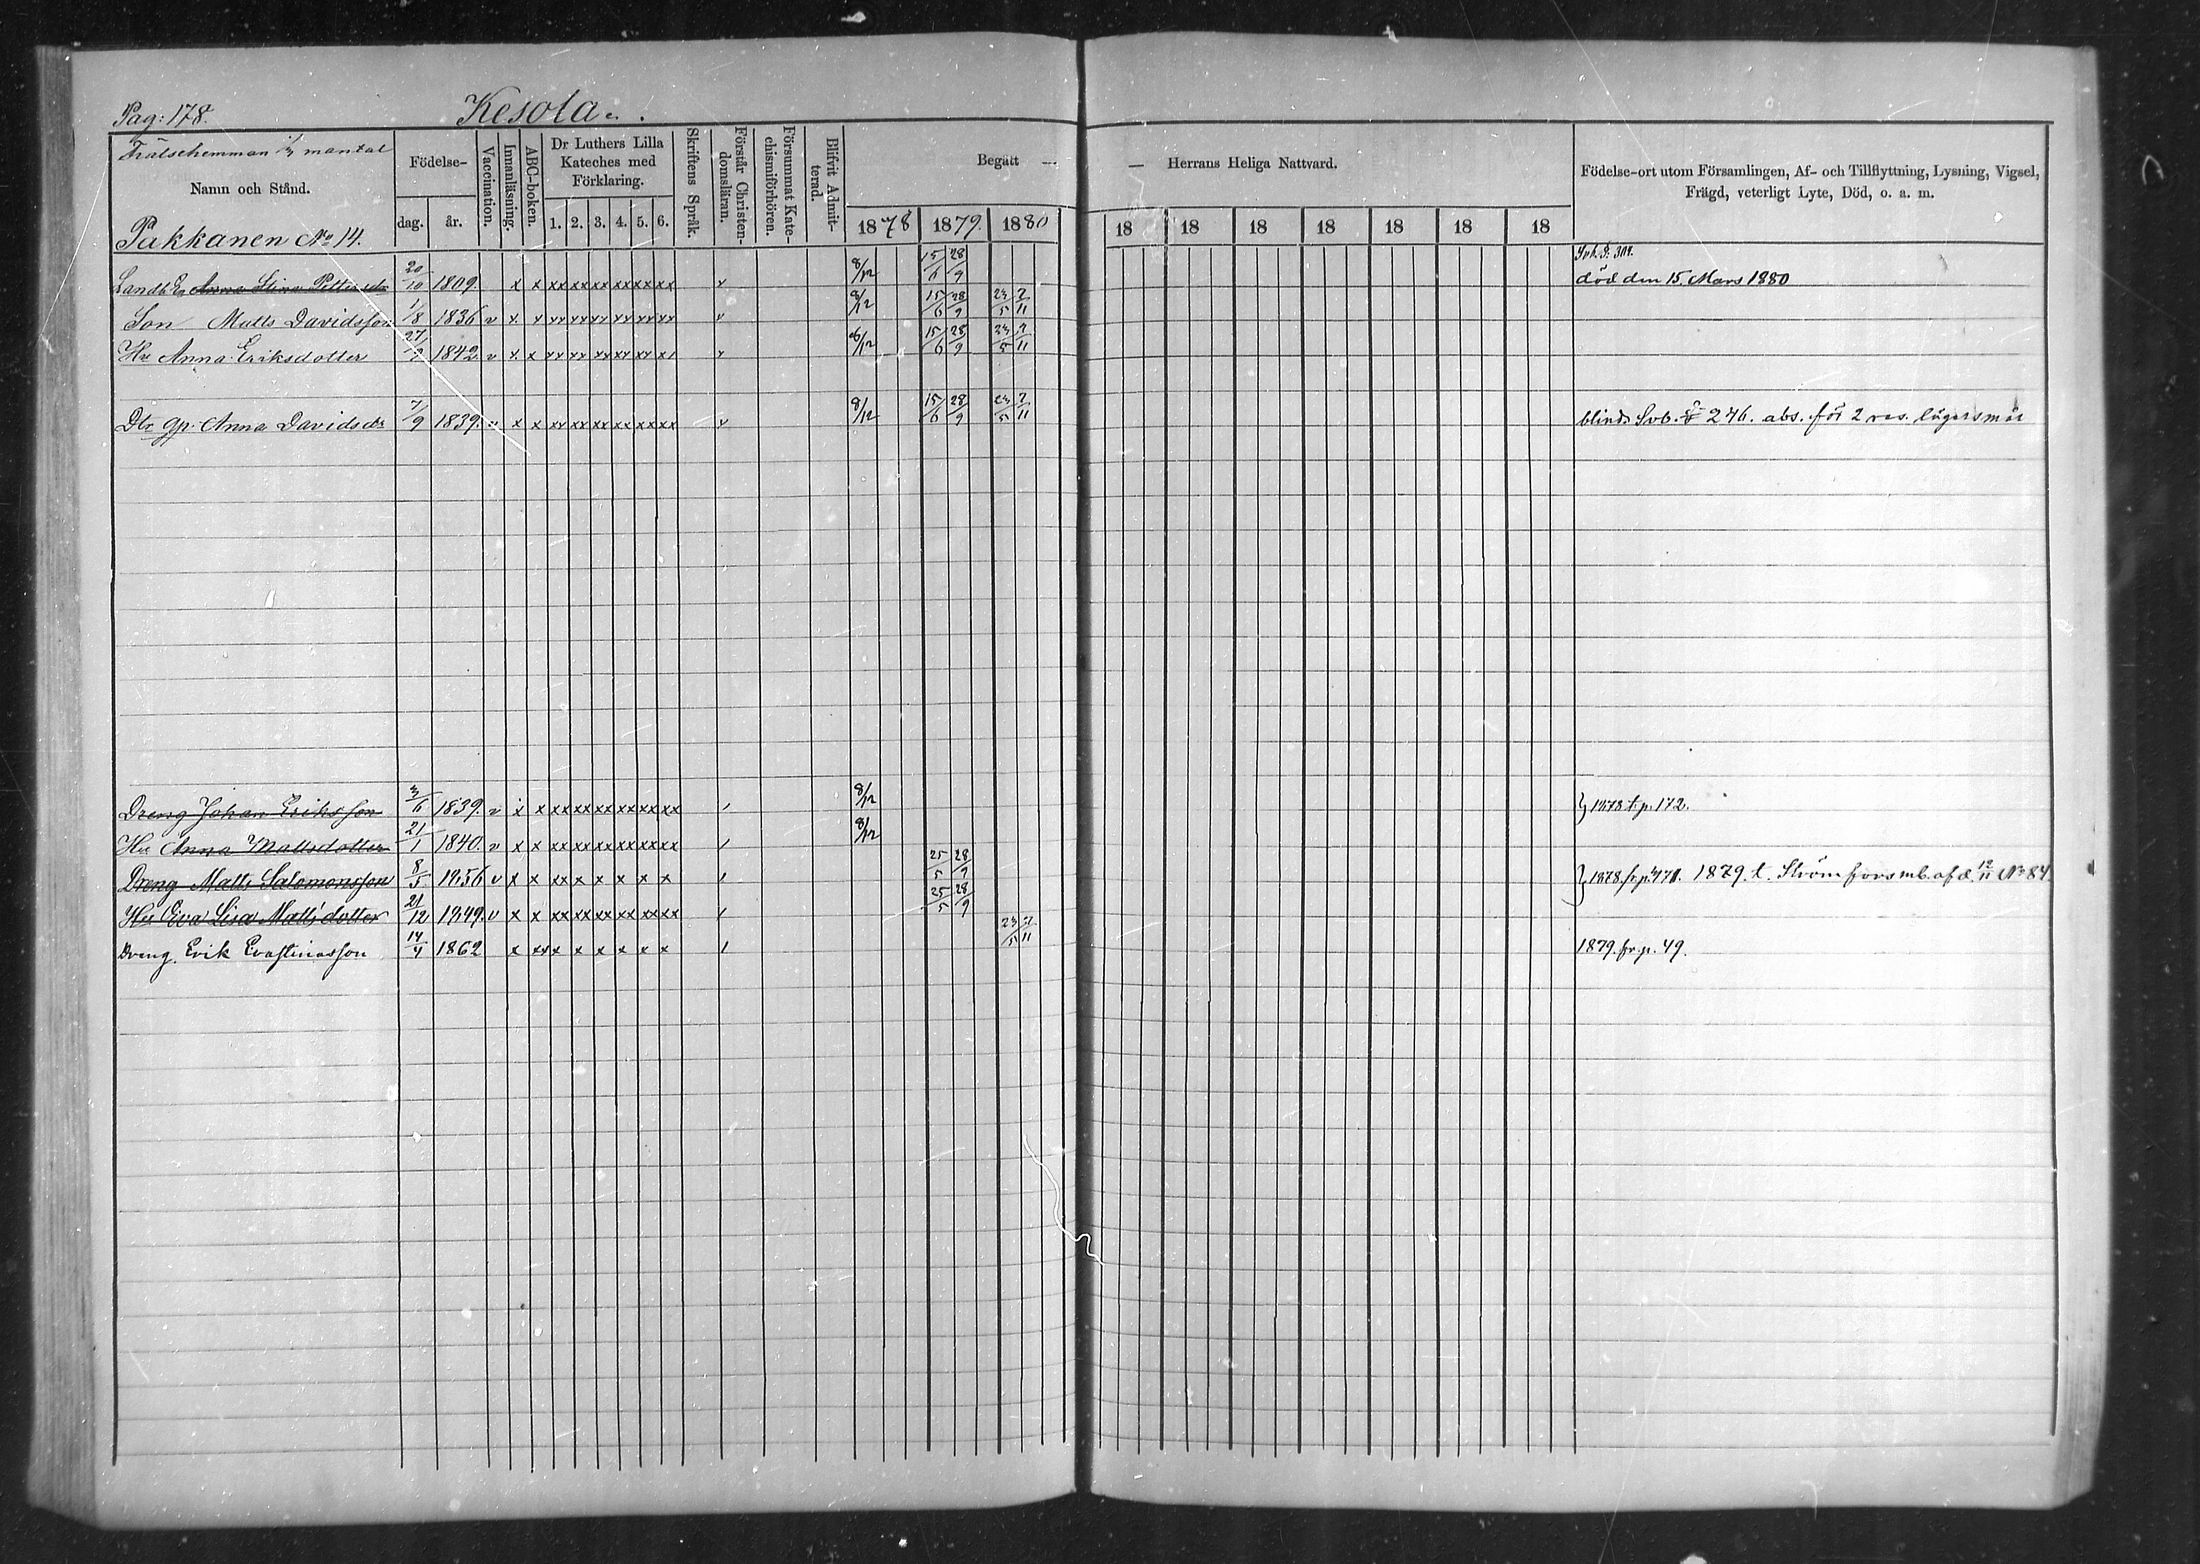 Pag: 178. Kesola.
Frälsehemman 1/3 mantal
Namn och Stånd.
Födelse-
dag. år.
Vaccination.
Innanläsning.
ABC-boken.
Dr Luthers Lilla Kateches med Förklaring.
1. 2. 3. 4. 5. 6.
Skriftens Språk.
Förstår Christendomsläran.
Försummat Katechismiförhören.
Blifvit Admitterad.
Begått — — Herrans Heliga Nattvard.
1878 1879. 1880 18 18 18 18 18 18 18
Födelse-ort utom Församlingen, Af- och Tillflyttning, Lysning, Vigsel,
Frägd, veterligt Lyte, Död, o. a. m.
Pakkanen No 14.
Anna Stina Pettersdr 20/10 1809. x x xx xx xx xx xx xx v 8/12 15/6 28/9 död den 15. Mars 1880
Son Matts Davidsson 1/8 1836 v x x xx xx xx xx xx xx v 8/12 15/6 28/9 23/5 7/11
Hu Anna Eriksdotter 1842. v x x xx xx xx xx xx xx v 8/12 15/6 28/9 23/5 7/11
Dtr Anna Davidsdr 7/9 1839. v x x xx xx xx xx xx xx v 8/12 15/6 28/9 23/5 7/11 blind. 276. abs. för 2 res. lägersmål
Dreng Johan Eriksson 3/6 1839. v x x xx xx xx xx xx xx / 8/12 } 1878 t. p. 172.
Hu Anna Mattsdotter 21/1 1840. v x x xx xx xx xx xx xx / 8/12
Dreng Matts Salomonsson 8/5 1856 v x x xx x x x x x / 25/5 28/9 } 1878 fr. p. 1879. t. Strömfors mb. afd. 12/11 No 84.
Hu Eva Lisa Mattsdotter 21/12 1849. v x x xx xx xx xx xx xx / 25/5 28/9
Dreng. Erik Evastinasson 14/4 1862 x xx x x x x x x / 23/5 7/11 1879. fr. p. 49.